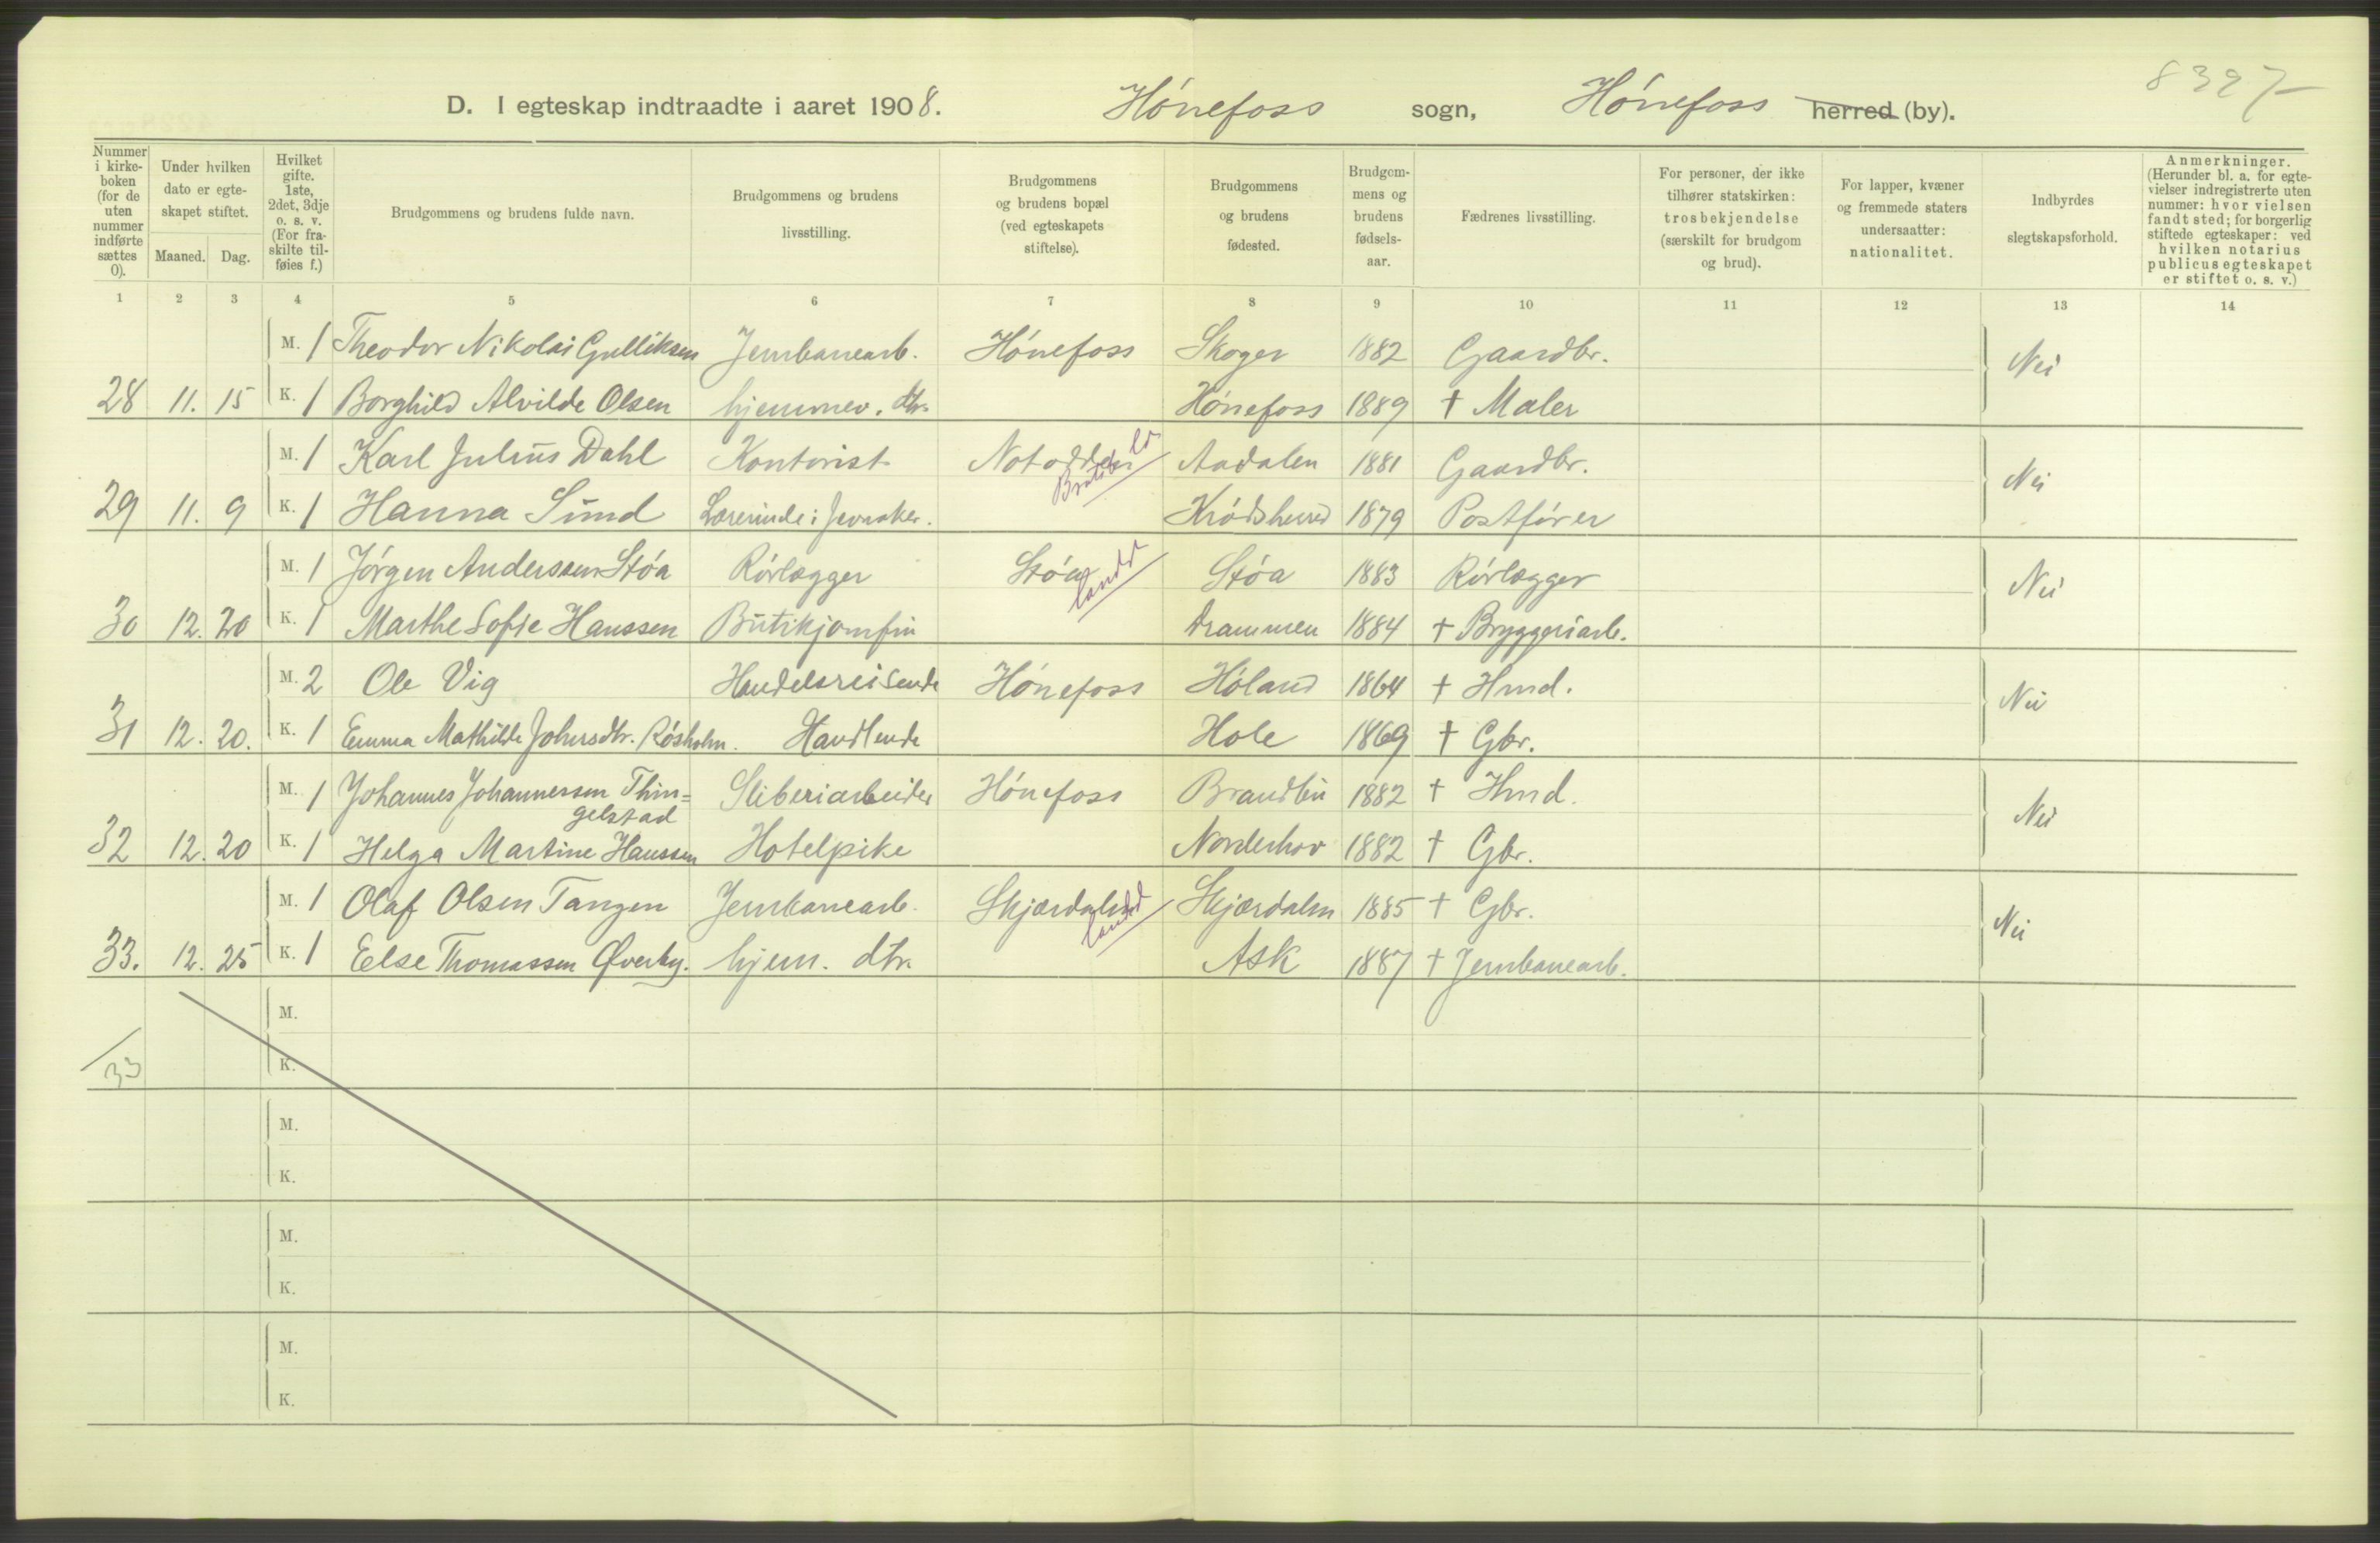 8327
D. I egteskap indtraadte i aaret 1908. Hónefoss sogn, Hónefoss herred (by).
Nummer i kirkeboken (for de uten nummer indførte sættes 0).
Under hvilken dato er egteskapet stiftet.
Maaned. Dag.
Hvilket gifte. 1ste, 2det, 3dje o. s. v. (For fraskilte tilføies f.)
Brudgommens og brudens fulde navn.
Brudgommens og brudens livsstilling.
Brudgommens og brudens bopæl (ved egteskapets stiftelse).
Brudgommens og brudens fødested.
Brudgommens og brudens fødselsaar.
Fædrenes livsstilling.
For personer, der ikke tilhører statskirken: trosbekjendelse (særskilt for brudgom og brud).
For lapper, kvæner og fremmede staters undersaatter: nationalitet.
Indbyrdes slegtskapsforhold.
Anmerkninger. (Herunder bl. a. for egtevielser indregistrerte uten nummer: hvor vielsen fandt sted; for borgerlig stiftede egteskaper: ved hvilken notarius publicus egteskapet er stiftet o. s. v.)
1 2 3 4 5 6 7 8 9 10 11 12 13 14
M. 1 Theodor Nikolai Gulliksen Jernbanearb. Hónefoss Skoger 1882 Gaardbr. Nei
28 11. 15 K. 1 Borghild Alvilde Olsen hjemmev. dtr. Hónefoss 1889 † Maler
M. 1 Karl Julius Dahl Kontorist Notodden Aadalen 1881 Gaardbr. Nei
29 11. 9 K. 1 Hanna Sund Lærerinde i Jevnaker. Kródsherred 1879 Postfórer
M. 1 Jórgen Anderssen Stóa Rórlægger Stóa landd Stóa 1883 Rórlægger Nei
30 12. 20 K. 1 Marthe Sofie Hanssen Butikjomfru Drammen 1884 † Bryggeriarb.
M. 2 Ole Vig Handelsreisende Hónefoss Hóland 1864 † Hmd. Nei
31 12. 20. K. 1 Emma Mathilde Johnsdtr. Rósholm. Handlende Hole 1869 † Gbr.
M. 1 Johannes Johannessen Thin=
gelstad Sliberiarbeider Hónefoss Brandbu 1882 † Hmd. Nei
32 12. 20 K. 1 Helga Martine Hanssen Hotelpike Norderhov 1882 † Gbr.
M. 1 Olaf Olsen Tangen Jernbanearb. Skjærdalen landd Skjærdalen 1885 † Gbr. Nei
33. 12. 25 K. 1 Eelse Thomassen Øverby. hjem. dtr. Ask 1887 † Jernbanearb.
M.
33 K.
M.
K.
M.
K.
M.
K.